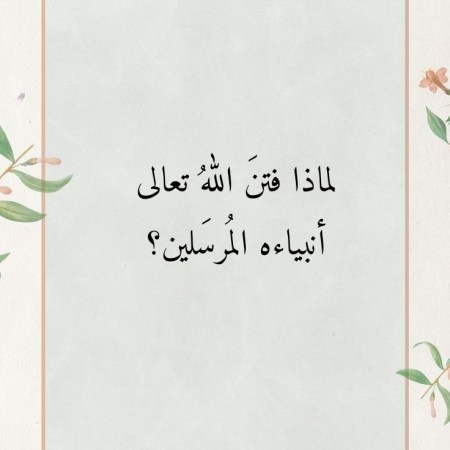 لماذا فتنَ اللهُ تعالى
أنبياءه المُرسَلين؟